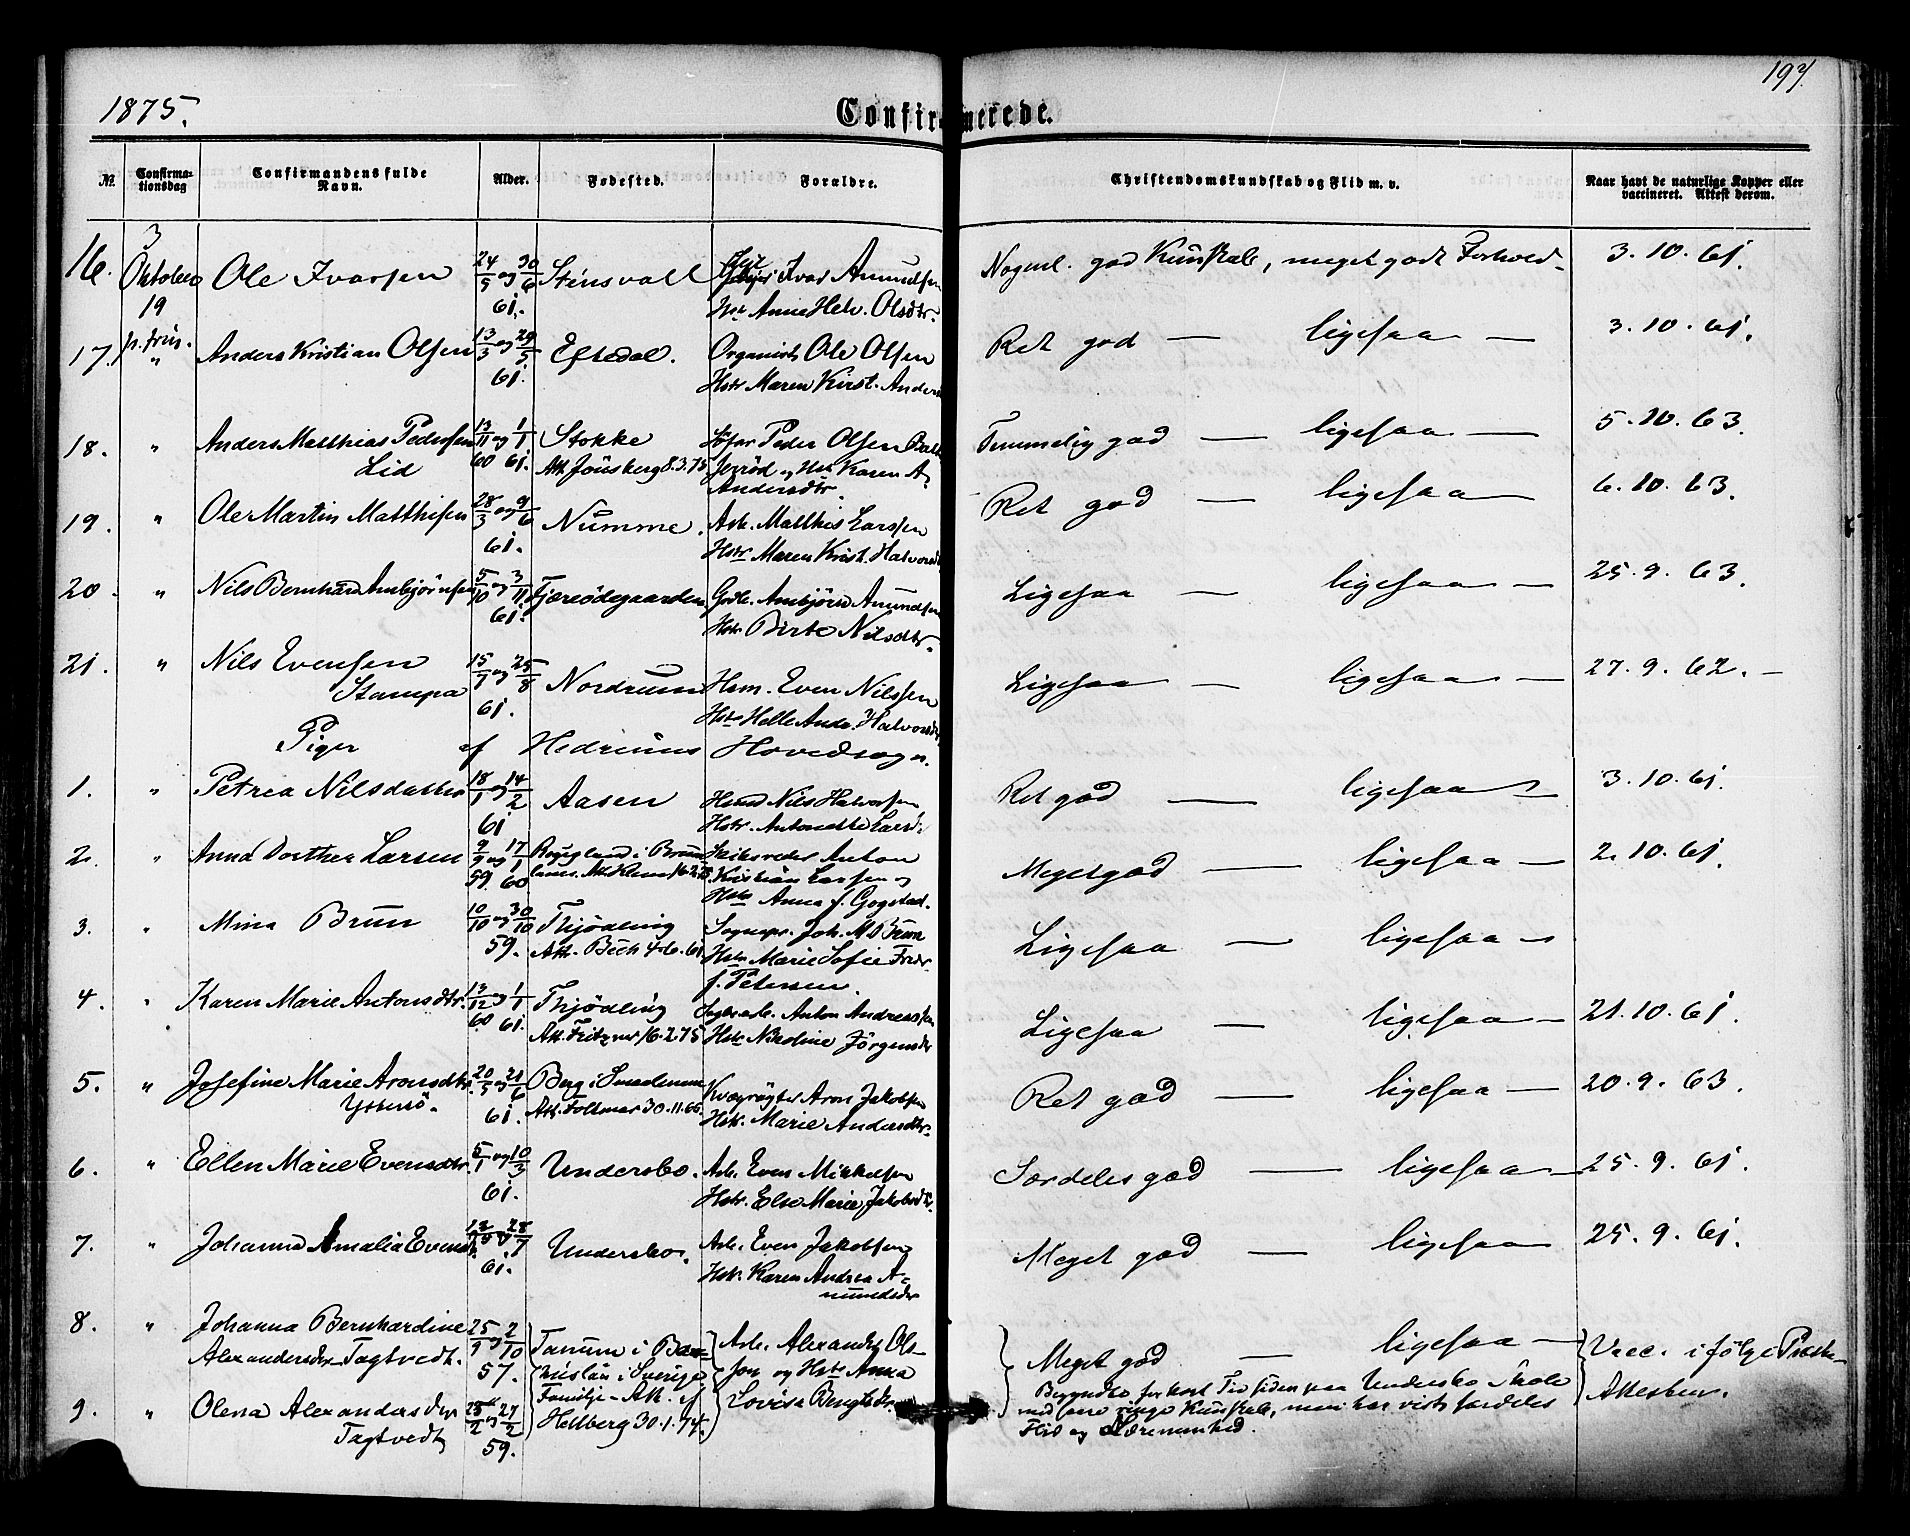 1875.
197.
Confirmerede.
№
Confirmationsdag
Confirmandens fulde Navn.
Alder.
Fødested.
Forældre.
Christendomskundskab og Flid m. v.
Naar havt de naturlige Kopper eller vaccineret. Attest derom.
16. 3 Oktober 19 p. Trin. Ole Ivarsen 24/5 og 30/6 61. Stensvall Ivar Amundsen
Hst Anne Helv. Olsdtr.
Nogenl. god Kunskab, meget godt Forhold 3.10.61.
17. " Anders Kristian Olsen 13/3 og 29/5 61. Eftedal. Organist Ole Olsen
Hstr Maren Kirst. Anders
Ret god — ligesaa — 3.10.61.
18. " Anders Matthias Pedersen Lid 13/11 og 1/1 60 61. Stokke
Att. Jönsberg 8.3.75
Peder Olsen
og Hst Karen A.
Andersdtr.
Temmelig god — ligesaa — 5.10.63.
19. " Ole Martin Matthisen 28/3 og 9/6 61. Numme. Arb. Matthis Larssen
Hstr Maren Krist. Halvorsdt
Ret god — ligesaa 6.10.63.
20. " Nils Bernhard Ambjörnsen 5/10 og 3/11 61. Tjæreödegaarden Gdb. Ambjörn Amundsen
Hstr. Birte Nilsdtr.
Ligesaa — ligesaa — 25.9.63.
21. " Nils Evensen Stampa 15/7 og 25/8 61. Nordrum Hsm. Even Nilssen
Hstr Helle Andr. Halvorsdt
Ligesaa — ligesaa — 27.9.62.—
Piger af Hedrums Hovedsogn.
1. " Petrea Nilsdatter 18/1 og 14/2 61 Aasen Hsmd Nils Halvorsen
Hstr. Antonette Larsd.
Ret god — ligesaa — 3.10.61.
2. " Anna Dorthea Larsen 9/9 og 17/1 59. 60 i Brun
lanes. Att. Klem 16.2.75
Anton
Kristian Larssen og
Hstr Anna f. Gogstad.
Meget god — ligesaa — 2.10.61.
3. " Mina Brun 10/10 og 30/10 59. Thjödling
Att. Bech 4.6.61
Sognepr. Joh. M. Brun
Hstr Marie Sofie Fredr.
f. Petersen.
Ligesaa — ligesaa —
4. " Karen Marie Antonsdtr. 13/12 og 1/1 60 61. Thjödling
Att. Fritzner 16.2.75
Anton Andreassen
Hstr Nikoline Jörgensdtr
Ligesaa — ligesaa — 21.10.61.
5. " Josefine Marie Aronsdtr. Yttersö. 20/3 og 21/6 61. Berg i Smaalenene
Att. Follmar 30.11.66.
Kvægrögter Aron Jakobsen
Hstr. Marie Andersdtr.
Ret god — ligesaa — 20.9.63.
6. " Ellen Marie Evensdtr. 5/1 og 10/3 61. Undersbo. Arb. Even Mikkelsen
Hstr. Else Marie Jakobsdtr.
Særdeles god — ligesaa — 25.9.61.
7. " Johanna Amalia Evensd. 28/7 61. Undersbo. Arb. Even Jakobsen
Hstr. Karen Andrea A-
mundsdtr
Meget god — ligesaa 25.9.61.
8. " Johanna Bernhardine
Alexandersdtr Tagtvedt. 25/7 og 2/10 57.
Tanum i Ba-
huslän i Sverige
Familje-Att. af
Hellberg 30.1.74.
Arb. Alexander Ols-
son og Hstr Anna
Lovisa Bengtsdr.
Meget god — ligesaa —
Begyndte for kort Tid siden paa Undersbo Skole
med saare ringe Kunskab, men har vist særdeles
Flid og Lærenemhed.
Vacc. ifölge Præste-
Attester.
9. " Olena Alexandersdtr
Tagtvedt 28/2 og 27/2 59.